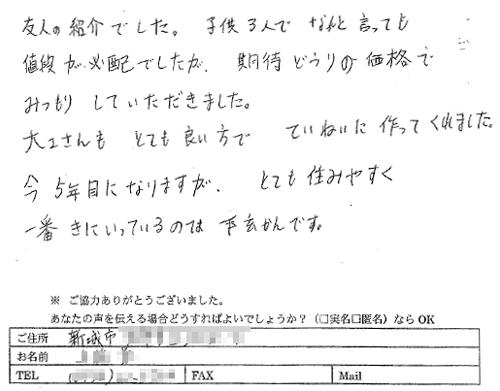 友人の紹介でした。子供3人でなんと言っても
値段が心配でしたが、期待どうりの価格で
みつもりしていただきました。
大工さんもとても良い方でていねいに作ってくれました
今5年目になりますが、とても住みやすく
一番きにいっているのは玄かんです。
※ ご協力ありがとうございました。
あなたの声を伝える場合どうすればよいでしょうか？（□実名□匿名）ならOK
ご住所 新城市
お名前
TEL FAX Mail